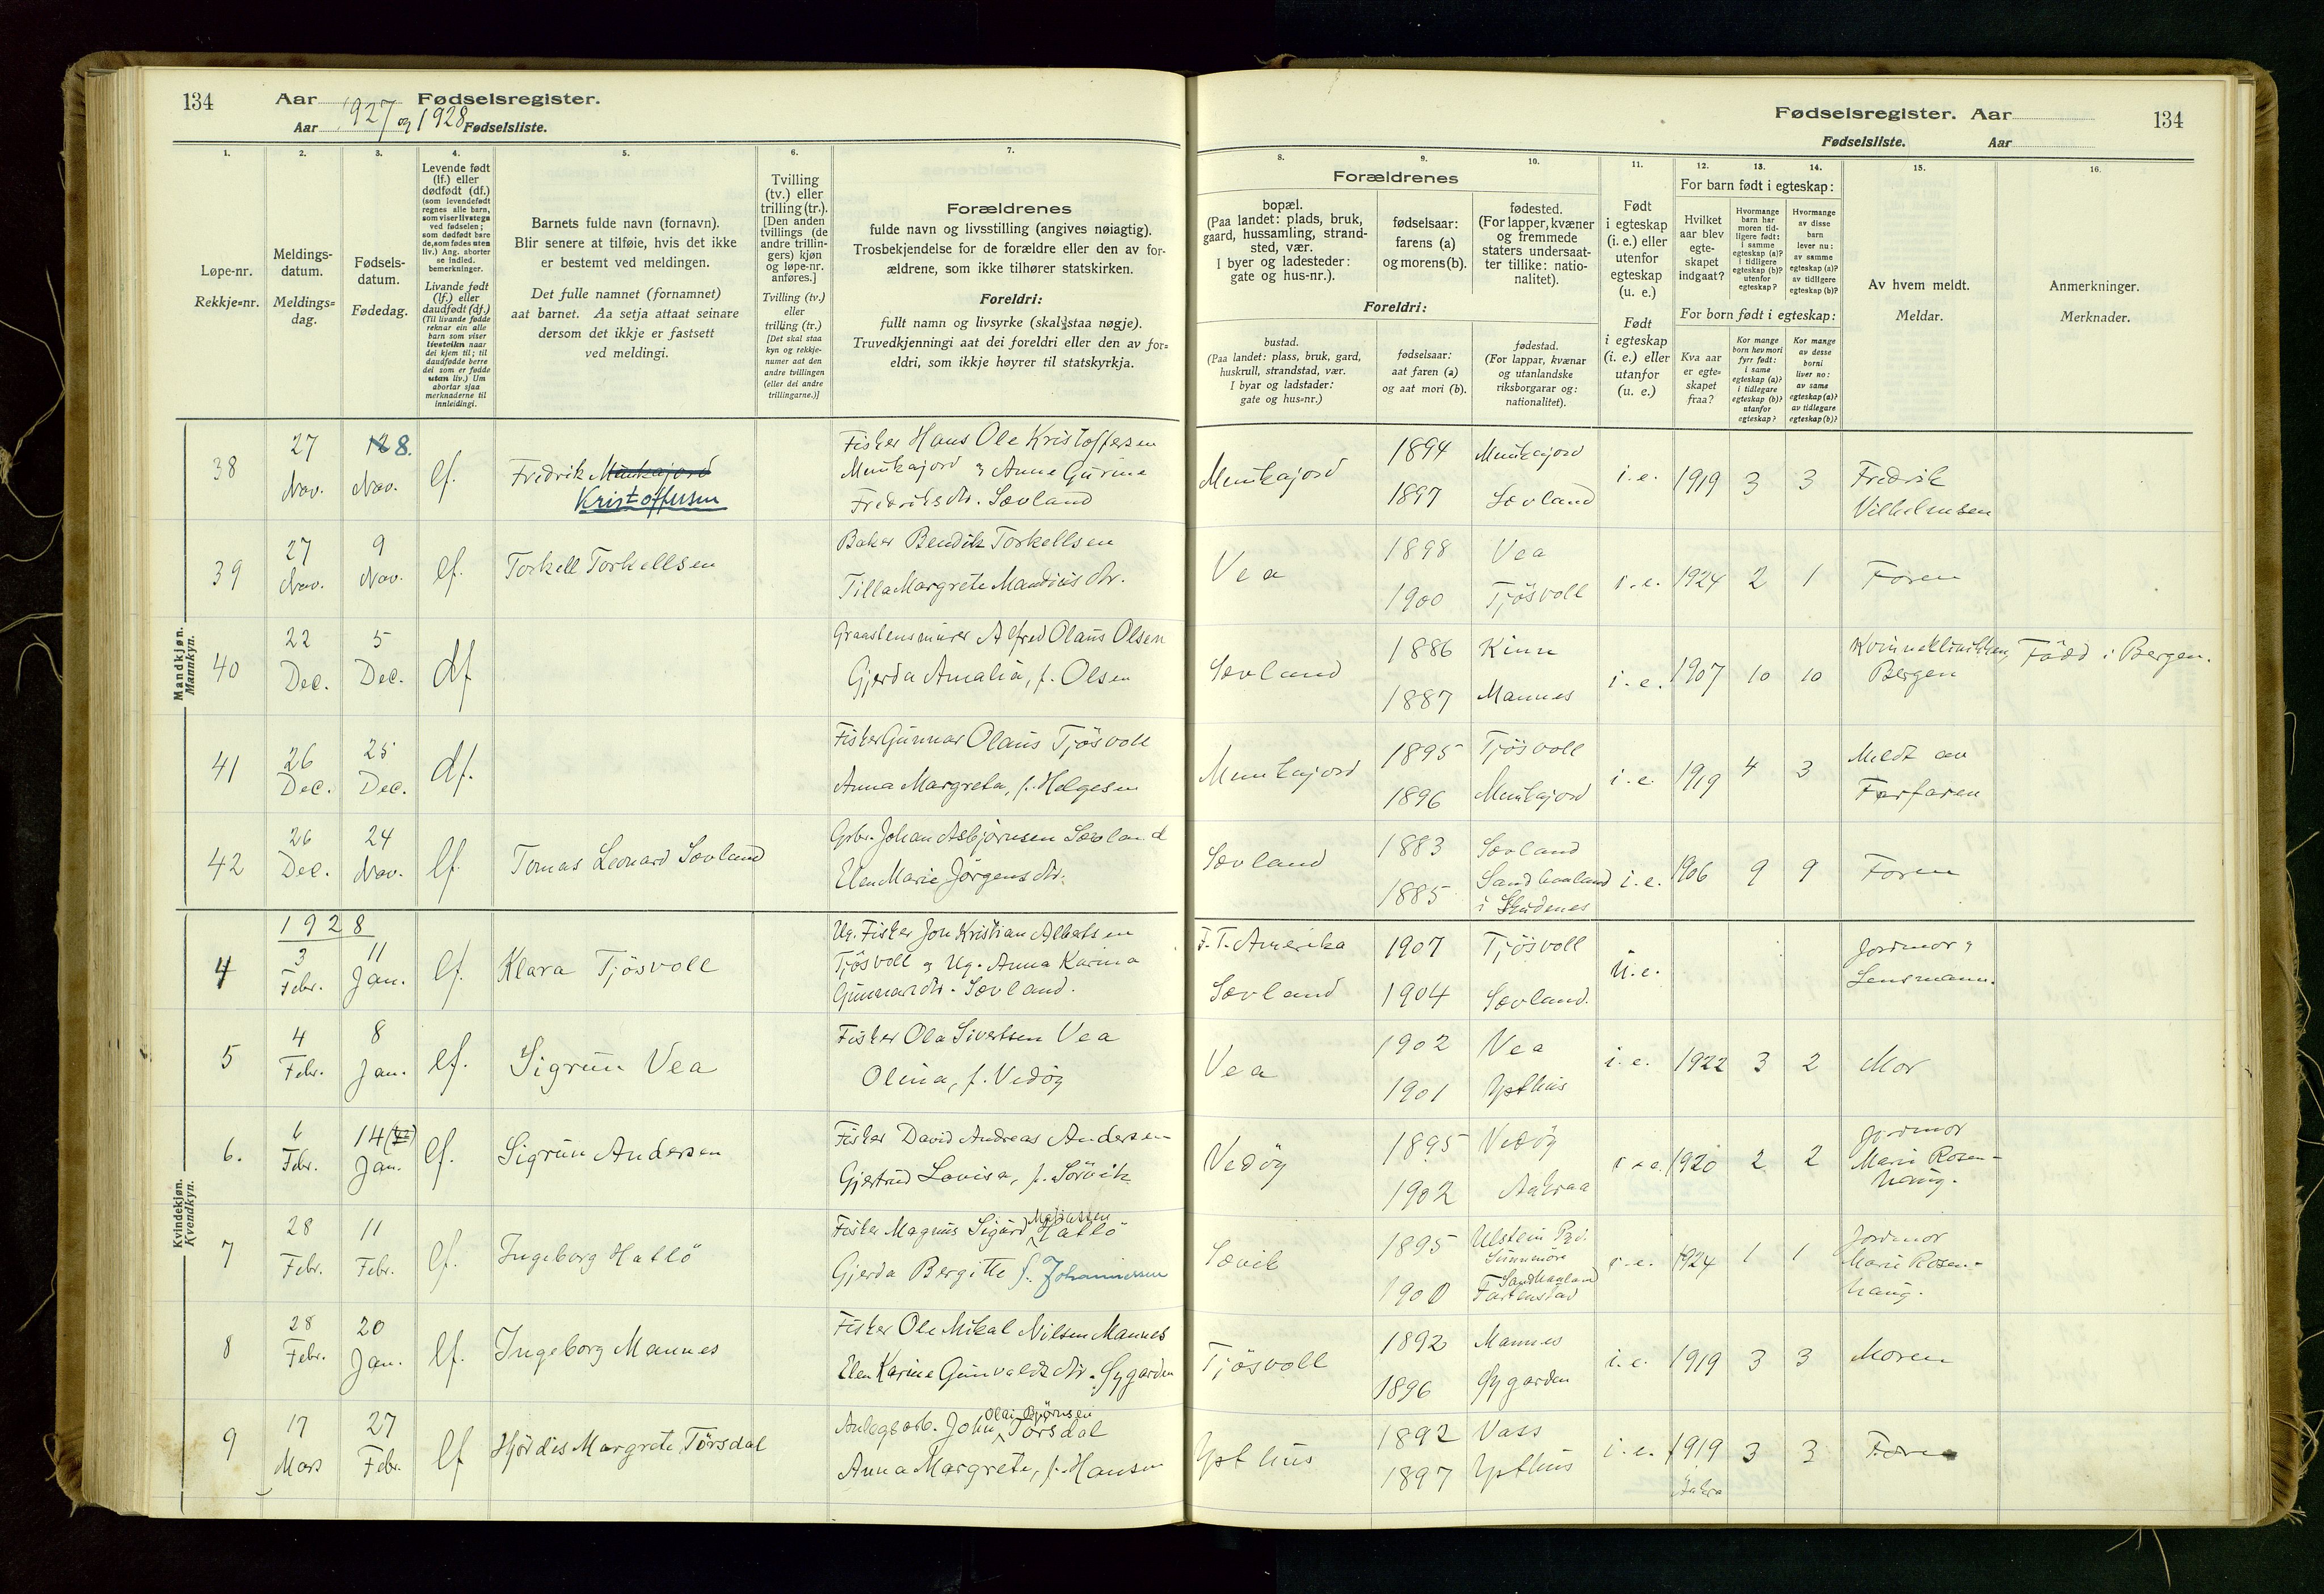 134 Aar 1927 og 1928 Fødselsregister.
Aar Fødselsliste.
Fødselsregister. Aar 134
Fødselsliste. Aar
1. 2. 3. 4. 5. 6. 7. 8. 9. 10. 11. 12. 13. 14. 15. 16.
Løpe-nr.
Rekkje=nr.
Meldings-
datum.
Meldings=
dag.
Fødsels-
datum.
Fødedag.
Levende født
(lf.) eller
dødfødt (df.)
(som levendefødt
regnes alle barn,
som viser livstegn
ved fødselen;
som dødfødt bare
de, som fødes uten
liv.) Ang. aborter
se indled.
bemerkninger.
Livande født
(lf.) eller
daudfødt (df.)
(Til livande fødde
reknar ein alle
barn som viser
livsteikn naar
dei kjem til; til
daudfødde berre
dei som er fødde
utan liv.) Um
abortar sjaa
merknaderne til
innleidingi.
Barnets fulde navn (fornavn).
Blir senere at tilføie, hvis det ikke
er bestemt ved meldingen.
Det fulle namnet (fornamnet)
aat barnet. Aa setja attaat seinare
dersom det ikkje er fastsett
ved meldingi.
Tvilling
(tv.) eller
trilling (tr.).
[Den anden
tvillings (de
andre trillin-
gers) kjøn
og løpe-nr.
anføres.]
Tvilling (tv.)
eller
trilling (tr.)
[Det skal staa
kyn og rekkje-
numer aat den
andre tvillingen
(eller dei andre
trillingarne.)]
Forældrenes
fulde navn og livsstilling (angives nøiagtig).
Trosbekjendelse for de forældre eller den av for-
ældrene, som ikke tilhører statskirken.
Foreldri:
fullt namn og livsyrke (skal staa nøgje).
Truvedkjenningi aat dei foreldri eller den av for=
eldri, som ikkje høyrer til statskyrkja.
Forældrenes
bopæl.
(Paa landet: plads, bruk,
gaard, hussamling, strand-
sted, vær.
I byer og ladesteder:
gate og hus-nr.).
fødselsaar:
farens (a)
og morens (b).
fødested.
(For lapper, kvæner
og fremmede
staters undersaat-
ter tillike: natio-
nalitet).
Foreldri:
bustad.
(Paa landet: plass, bruk, gard,
huskrull, strandstad, vær.
I byar og ladstader:
gate og hus=nr.)
fødselsaar:
aat faren (a)
og aat mori (b).
fødestad.
(For lappar, kvænar
og utanlandske
riksborgarar og:
nationalitet).
Født
i egteskap
(i. e.) eller
utenfor
egteskap
(u. e.)
Født
i egteskap
(i. e.) eller
utanfor
(u. e.)
For barn født i egteskap:
Hvilket
aar blev
egte-
skapet
indgaat?
Hvormange
barn har
moren tid-
ligere født:
i samme
egteskap (a)?
i tidligere
egteskap (b)?
utenfor
egteskap?
Hvormange
av disse
barn
lever nu:
av samme
egteskap (a)?
av tidligere
egteskap (b)?
For born født i egteskap:
Kva aar
er egte=
skapet
fraa?
Kor mange
born hev mori
fyrr født:
i same
egteskap (a)?
i tidlegare
egteskap (b)?
utanfor
egteskap?
Kor mange
av desse
borni
liver no:
av same
egteskap (a)?
av tidlegare
egteskap (b)?
Av hvem meldt.
Meldar.
Anmerkninger.
Merknader.
Mandkjøn.
Mannkyn.
38 27 Nov. 8. Nov. lf. Fredrik Munkajord Kristoffersen
Fisker Hans Ole Kristoffersen
Munkajord og Anne Gurine
Fredriksdtr. Sævland
Munkajord 1894 Munkajord
1897 Sævland
i. e. 1919 3 3 Fredrik
Vilhelmsen
39 27 Nov. 9 Nov. lf. Torkell Torkellsen
Baker Bendik Torkellsen
Tilla Margrete Mandiusdtr.
Vea 1898 Vea
1900 Tjösvoll
i. e. 1924 2 1 Faren
40 22 Dec. 5 Dec. df
Graastensmurer Alfred Olaus Olsen
Gjerda Amalia, f. Olsen
Sævland 1886 Kinn
1887 Mannes
i. e. 1907 10 10 Kvinneklinikken,
Bergen
Född i Bergen.
41 26 Dec. 25 Dec. df.
Fisker Gunnar Olaus Tjösvoll
Anna Margreta, f. Helgesen
Munkajord 1895 Tjösvoll
1896 Munkajord
i. e. 1919 4 3 Meldt av
Farfaren
42 26 Dec. 24 Nov. lf. Tomas Leonard Sævland
Gbr. Johan Asbjørnsen Sævland
Elen Marie Jörgensdtr.
Sævland 1883 Sævland
1885 Sandhaaland
i Skudenes
i. e. 1906 9 9 Faren
Kvindekjøn.
Kvendkyn.
1928
4 3 Febr. 11 Jan. lf. Klara Tjösvoll
Ug. Fisker Jon Kristian Albertsen
Tjösvoll og Ug. Anna Karina
Gunnarsdtr. Sævland.
F. T. Amerika 1907 Tjösvoll
Sævland 1904 Sævland.
u. e. Jordmor og
Lensmann.
5 4 Febr. 8 Jan. lf. Sigrun Vea
Fisker Ola Sivertsen Vea
Olina, f. Vedöy
Vea 1902 Vea
1901 Ypthus
i. e. 1922 3 2 Mor
6. 6 Febr. 14 Jan. lf. Sigrun Andersen
Fisker David Andreas Andersen
Gjertrud Lovisa, f. Sörvik
Vedöy 1895 Vedöy
1902 Aakraa
i. e. 1920 2 2 Jordmor
Marie Rosen-
haug.
7 28 Febr. 11 Febr. lf. Ingeborg Hatlö
Fisker Magnus Sigurd Matiassen Hatlö
Gjerda Bergitte f. Johannessen
Sævik 1895 Ulstein Prd.
Sunnmöre
1900 Sandhaaland
i. e. 1924 1 1 Jordmor
Marie Rosen-
haug.
8 28 Febr. 20 Jan. lf. Ingeborg Mannes
Fisker Ole Mikal Nilsen Mannes
Elen Karine Gunvaldsdtr. Sygarden
Tjösvoll 1892 Mannes
1896 Sygarden
i. e. 1919 3 3 Moren
9 17 Mars 27 Febr. lf Hjördis Margrete Törsdal
Anlegsarb. John Olai Bjørnsen Törsdal
Anna Margrete, f. Hansen
Ypthus 1892 Vass
1897 Ypthus
i. e. 1919 Aakra 3 3 Faren